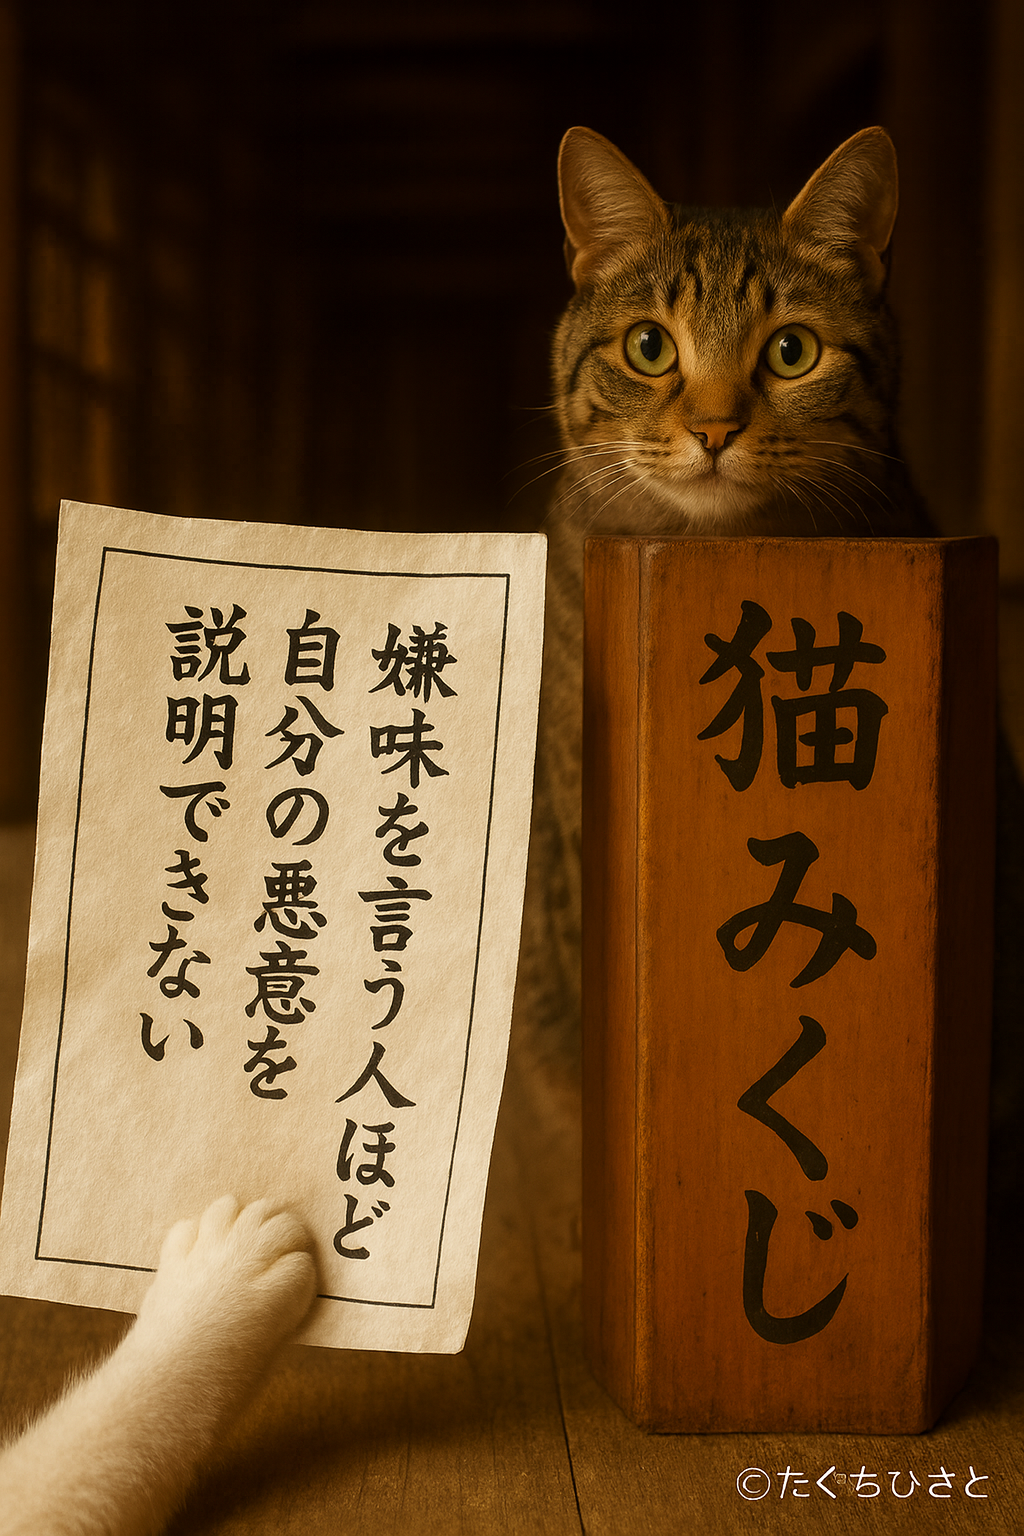 嫌味を言う人ほど
自分の悪意を
説明できない
猫みくじ
©たぐちひさと